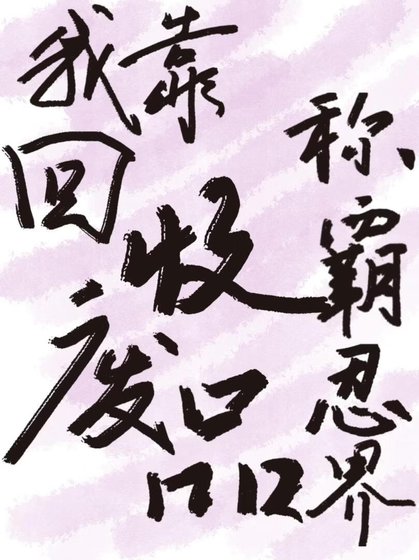 我靠
回收
废品
称霸忍界